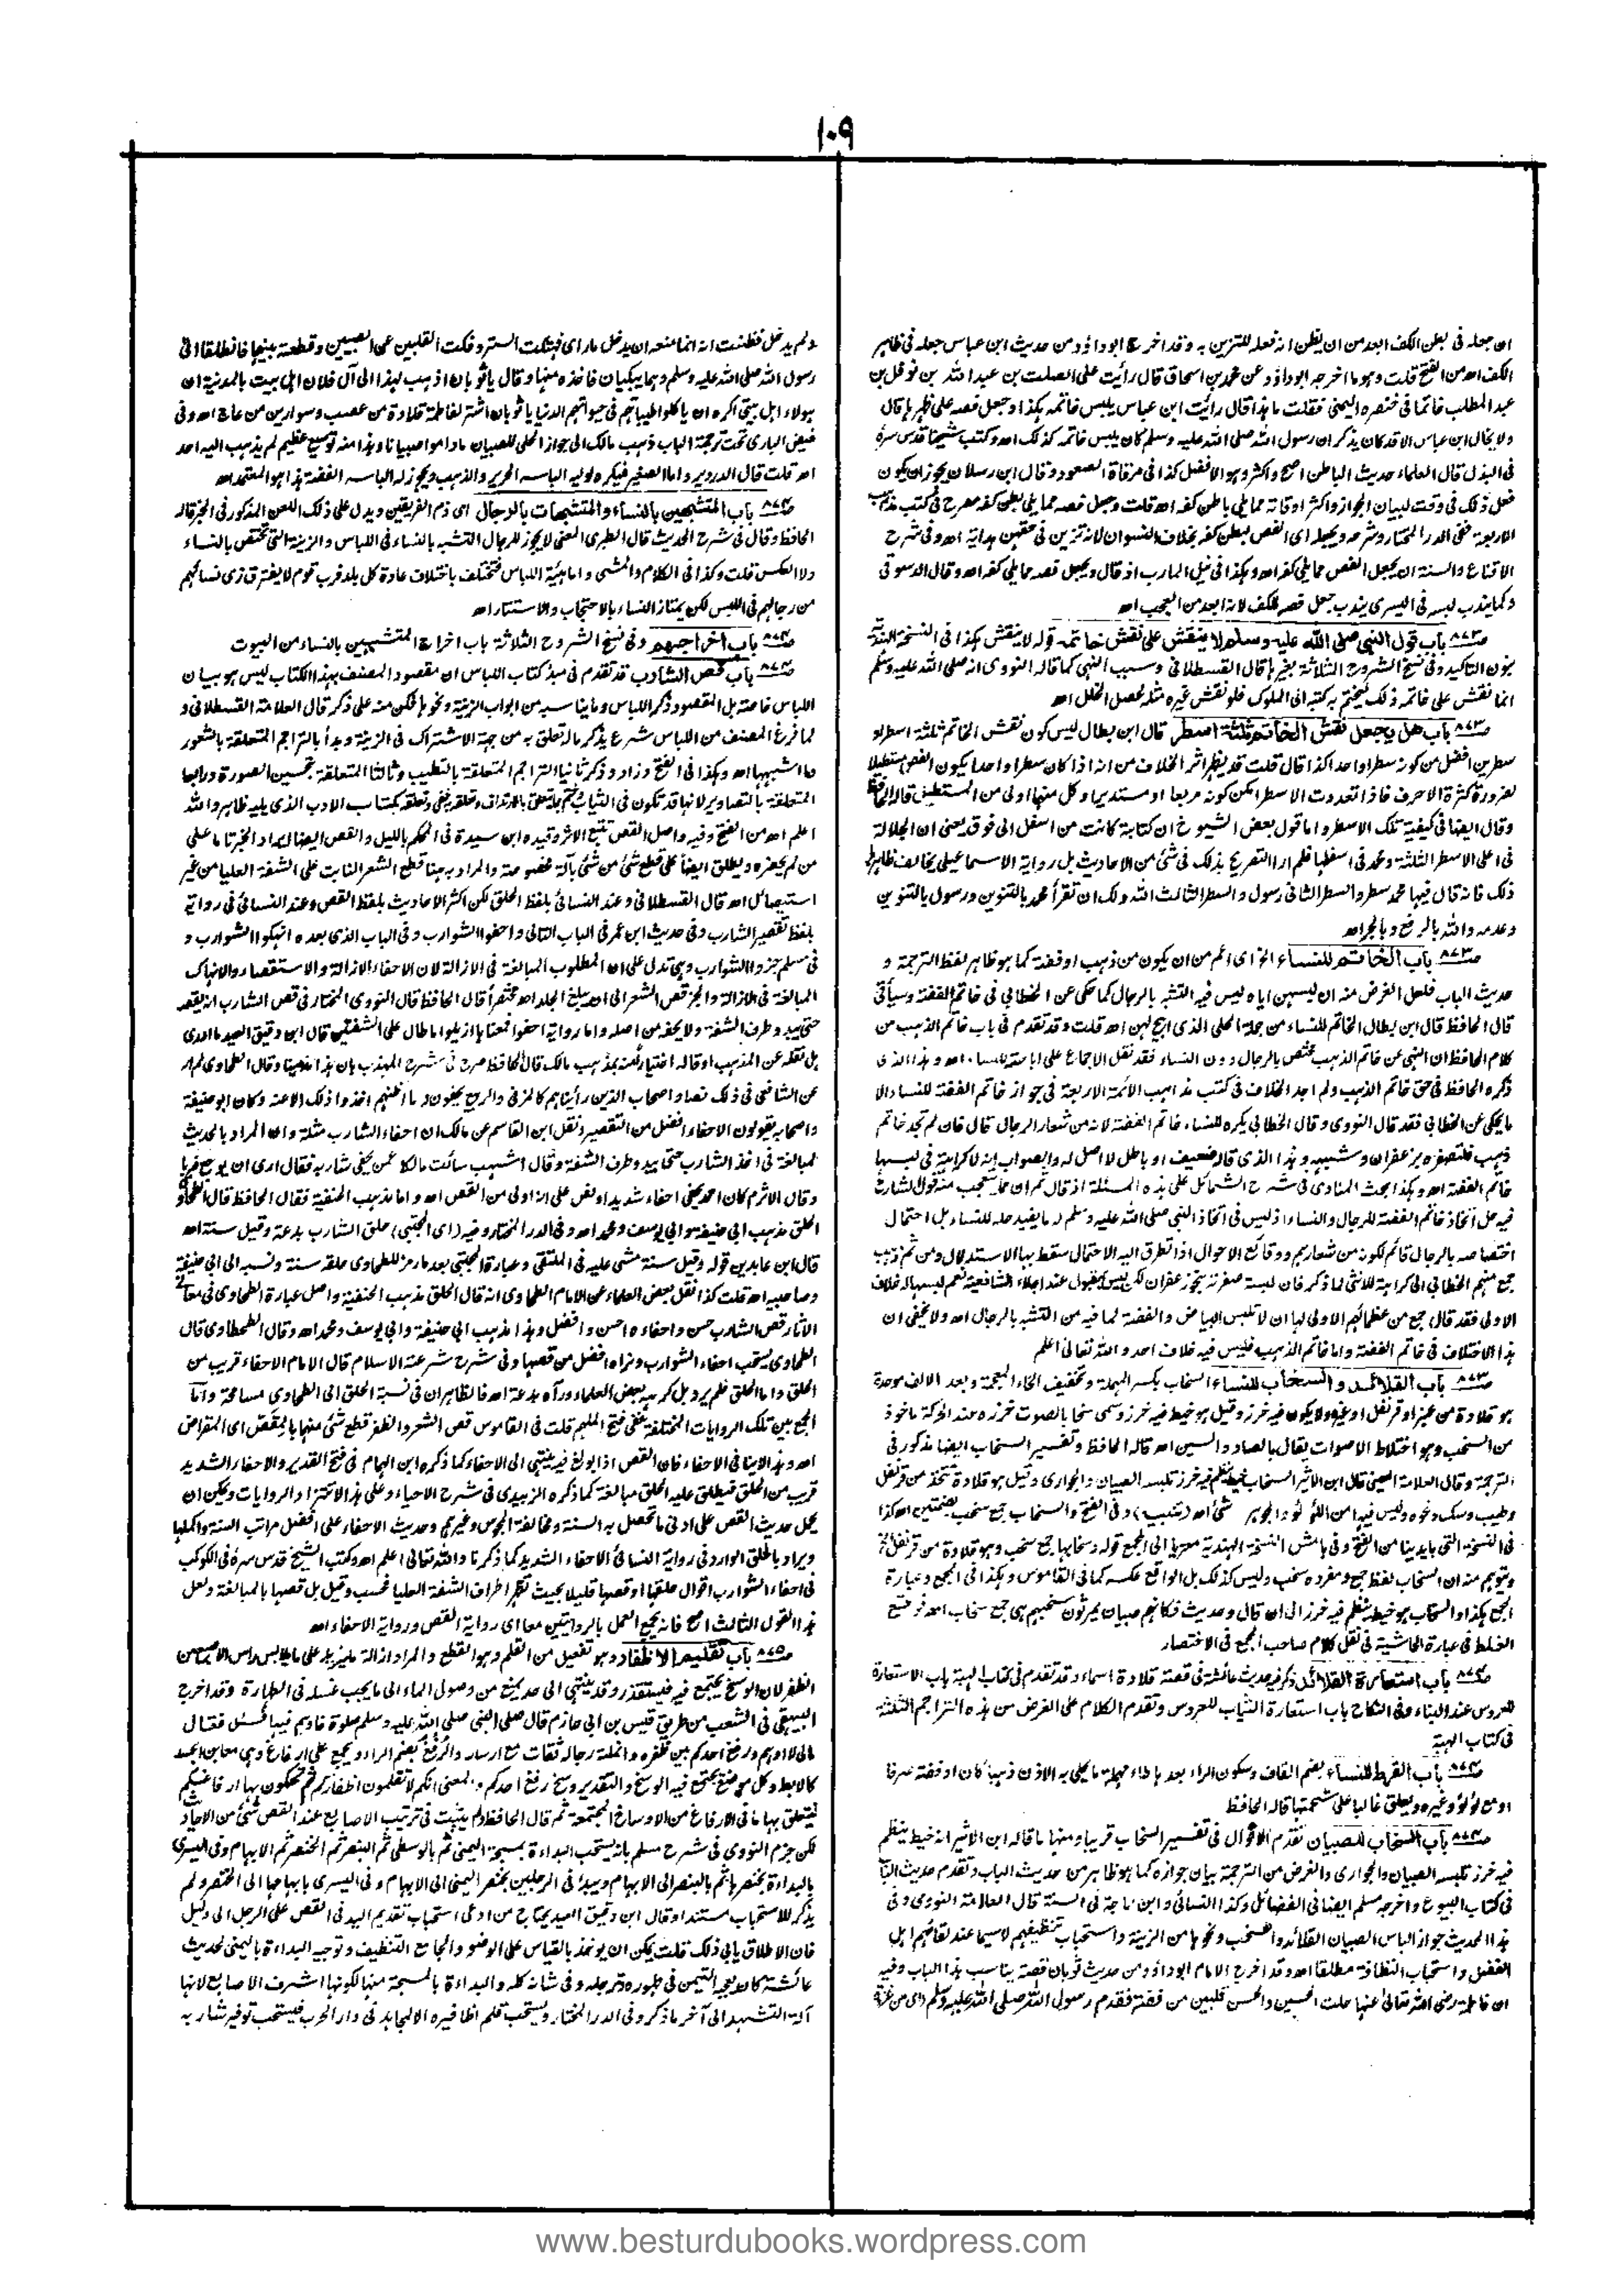 ١٠٩
ان جعله فى بطن الكف ابعد من ان يظن انه فعله للتزين به وقد اخرج ابو داؤد من حديث ابن عباس جعله فى ظاهر
الكف اه من الفتح قلت وهو ما اخرجه ابوداؤد عن محمد بن اسحاق قال رأيت على الصلت بن عبد الله بن نوفل بن
عبد المطلب خاتما فى خنصره اليمنى فقلت ما هذا قال رأيت ابن عباس يلبس خاتمه هكذا وجعل فصه على ظهرها قال
ولا يخال ابن عباس الا قد كان يذكر ان رسول الله صلى الله عليه وسلم كان يلبس خاتمه كذلك اه وكتب شيخنا قدس سره
فى البذل قال العلماء حديث الباطن اصح واكثر وهو الافضل كذا فى مرقاة الصعود وقال ابن رسلان يجوز ان يكون
فعل ذلك فى وقت لبيان الجواز واكثر اوقاته مما يلى باطن كفه اه قلت وجعل فصه مما يلى بطن كفه مصرح فى كتب مذاهب
الاربعة ففى الدر المختار وشرحه ويجعله اى الفص لبطن كفه بخلاف النسوان لانه تزين فى حقهن هداية اه وفى شرح
الاقناع والسنة ان يجعل الفص مما يلى كفه اه وهكذا فى نيل المارب اذ قال ويجعل فصه مما يلى كفه اه وقال الدسوقى
وكما يندب لبسه فى اليسرى يندب جعل فصه للكف لانه ابعد من العجب اه
ص٨٧٣ باب قول النبى صلى الله عليه وسلم لا ينقش على نقش خاتمه قوله لا ينقش هكذا فى النسخة الهندية
بنون التاكيد وفى نسخ الشروح الثلاثة بغيرها قال القسطلانى وسبب النهى كما قاله النووى انه صلى الله عليه وسلم
انما نقش على خاتمه ذلك ليختم به كتبه الى الملوك فلو نقش غيره مثله لحصل الخلل اه
ص٨٧٣ باب هل يجعل نقش الخاتم ثلثة اسطر قال ابن بطال ليس كون نقش الخاتم ثلثة اسطر او
سطرين افضل من كونه سطرا واحدا كذا قال قلت قد يظهر اثر الخلاف من انه اذا كان سطرا واحدا يكون الفص مستطيلا
لضرورة كثرة الاحرف فاذا تعددت الاسطر امكن كونه مربعا او مستديرا وكل منهما اولى من المستطيل قاله الحافظ
وقال ايضا فى كيفية تلك الاسطر واما قول بعض الشيوخ ان كتابة كانت من اسفل الى فوق يعنى ان الجلالة
فى اعلى الاسطر الثلثة ومحمد فى اسفلها فلم ار التصريح بذلك فى شئ من الاحاديث بل رواية الاسماعيلى يخالف ظاهرها
ذلك فانه قال فيها محمد سطر والسطر الثانى رسول والسطر الثالث الله ولك ان تقرأ محمد بالتنوين ورسول بالتنوين
وعدمه والله بالرفع وبالجر اه
ص٨٧٣ باب الخاتم للنساء الخ اى اعم من ان يكون من ذهب او فضة كما هو ظاهر لفظ الترجمة و
حديث الباب فلعل الغرض منه ان لبسهن اياه ليس فيه التشبه بالرجال كما حكى عن الخطابى فى خاتم الفضة وسيأتى
قال الحافظ قال ابن بطال الخاتم للنساء من جملة الحلى الذى ابيح لهن اه قلت وقد تقدم فى باب خاتم الذهب من
كلام الحافظ ان النهى عن خاتم الذهب مختص بالرجال دون النساء فقد نقل الاجماع على اباحته للنساء اه وهذا الذى
ذكره الحافظ فى حق خاتم الذهب ولم اجد الخلاف فى كتب مذاهب الائمة الاربعة فى جواز خاتم الفضة للنساء الا
ما يحكى عن الخطابى فقد قال النووى وقال الخطابى يكره للنساء خاتم الفضة لانه من شعار الرجال قال فان لم تجد خاتم
ذهب فلتصفره بزعفران وشبهه وهذا الذى قاله ضعيف او باطل لا اصل له والصواب انه لا كراهة فى لبسها
خاتم الفضة اه وهكذا بحث المناوى فى شرح الشمائل على هذه المسئلة اذ قال ثم ان مما يتعجب منه قول الشارح
فيه حل اتخاذ خاتم الفضة للرجال والنساء اذ ليس فى اتخاذ النبى صلى الله عليه وسلم له ما يفيد حله للنساء بل احتمال
اختصاصه بالرجال قائم لكونه من شعارهم ووقائع الاحوال اذا تطرق اليه الاحتمال سقط بها الاستدلال ومن ثم ذهب
جمع منهم الخطابى الى كراهته للانثى لما ذكر فان لبسته صفرته بنحو زعفران لكن ليس بمقبول عند اجلاء الشافعية نعم لبسها له خلاف
الاولى فقد قال جمع من عظمائهم الاولى لها ان لا تلبس البياض والفضة لما فيه من التشبه بالرجال اه ولا يخفى ان
هذا الاختلاف فى خاتم الفضة واما خاتم الذهب فليس فيه خلاف احد والله تعالى اعلم
ص٨٧٣ باب القلائد والسخاب للنساء السخاب بكسر المهملة وتخفيف الخاء المعجمة وبعد الالف موحدة
هو قلادة من عنبر او قرنفل او غيره ولا يكون فيه خرز وقيل هو خيط فيه خرز وسمى سخابا لصوت خرزه عند الحركة ماخوذ
من السخب وهو اختلاط الاصوات يقال بالصاد والسين اه قاله الحافظ وتفسير السخاب ايضا مذكور فى
الترجمة وقال العلامة العينى قال ابن الاثير السخاب خيط ينظم فيه خرز تلبسه الصبيان والجوارى وقيل هو قلادة تتخذ من قرنفل
وطيب وسك ونحوه وليس فيها من اللؤلؤ والجوهر شئ اه (تنبيه) وفى الفتح والسخاب جمع سخب بضمتين اه كذا
فى النسخة التى بايدينا من الفتح وفى هامش النسخة الهندية معزيا الى المجمع قوله وسخابها جمع سخب وهو قلادة من قرنفل الخ
ويتوهم منه ان السخاب لفظ جمع ومفرده سخب وليس كذلك بل الواقع عكسه كما فى القاموس وهكذا فى المجمع وعبارة
المجمع هكذا والسخاب هو خيط ينظم فيه خرز الى ان قال وحديث فكانهم صبيان يمرثون سخبهم هى جمع سخاب اه فوقع
الغلط فى عبارة الحاشية فى نقل كلام صاحب المجمع فى الاختصار
ص٨٧٤ باب استعارة القلائد ذكر فيه حديث عائشة فى قصة قلادة اسماء وقد تقدم فى كتاب الهبة باب الاستعارة
للعروس عند البناء وفى النكاح باب استعارة الثياب للعروس وتقدم الكلام على الغرض من هذه التراجم الثلثة
فى كتاب الهبة
ص٨٧٤ باب القرط للنساء بضم القاف وسكون الراء بعدها طاء مهملة ما يحلى به الاذن ذهبا كان او فضة صرفا
او مع لؤلؤ وغيره ويعلق غالبا على شحمتها قاله الحافظ
ص٨٧٤ باب السخاب للصبيان تقدم الاقوال فى تفسير السخاب قريبا ومنها ما قاله ابن الاثير انه خيط ينظم
فيه خرز تلبسه الصبيان والجوارى والغرض من الترجمة بيان جوازه كما هو ظاهر من حديث الباب وتقدم حديث الباب
فى كتاب البيوع واخرجه مسلم ايضا فى الفضائل وكذا النسائى وابن ماجة فى السنة قال العلامة النووى وفى
هذا الحديث جواز الباس الصبيان القلائد والسخب ونحوها من الزينة واستحباب تنظيفهم لاسيما عند لقائهم اهل
الفضل واستحباب النظافة مطلقا اه وقد اخرج الامام ابو داؤد من حديث ثوبان قصة يناسب هذا الباب وفيه
ان فاطمة رضى الله تعالى عنها حلت الحسين والحسن قلبين من فضة فقدم رسول الله صلى الله عليه وسلم (اى من غزاة)
ولم يدخل فظننت انه انما منعه ان يدخل ما رأى فهتكت الستر وفكت القلبين عن الصبيين وقطعته بينهما فانطلقا الى
رسول الله صلى الله عليه وسلم وهما يبكيان فاخذه منهما وقال يا ثوبان اذهب بهذا الى آل فلان اهل بيت بالمدينة ان
هولاء اهل بيتى اكره ان ياكلوا طيباتهم فى حياتهم الدنيا يا ثوبان اشتر لفاطمة قلادة من عصب وسوارين من عاج اه وفى
فيض البارى تحت ترجمة الباب ذهب مالك الى جواز الحلى للصبيان ما داموا صبيانا وهذا منه توسيع عظيم لم يذهب اليه احد
اه قلت قال الدردير واما الصغير فيكره لوليه الباسه الحرير والذهب ويجوز له الباسه الفضة هذا هو المعتمد اه
ص٨٧٤ باب المتشبهين بالنساء والمتشبهات بالرجال اى ذم الفريقين ويدل على ذلك اللعن المذكور فى الخبر قاله
الحافظ وقال فى شرح الحديث قال الطبرى المعنى لا يجوز للرجال التشبه بالنساء فى اللباس والزينة التى تختص بالنساء
ولا العكس قلت وكذا فى الكلام والمشى واما هيئة اللباس فتختلف باختلاف عادة كل بلد فرب قوم لا يفترق زى نسائهم
من رجالهم فى اللبس لكن يمتاز النساء بالاحتجاب والاستتار اه
ص٨٧٤ باب اخراجهم وفى نسخ الشروح الثلاثة باب اخراج المتشبهين بالنساء من البيوت
ص٨٧٤ باب قص الشارب قد تقدم فى مبدء كتاب اللباس ان مقصود المصنف بهذا الكتاب ليس هو بيان
اللباس خاصة بل المقصود ذكر اللباس وما يناسبه من ابواب الزينة ونحوها فكن منه على ذكر قال العلامة القسطلانى و
لما فرغ المصنف من اللباس شرع يذكر ماله تعلق به من جهة الاشتراك فى الزينة وبدأ بالتراجم المتعلقة بالشعور
وما اشبهها اه وهكذا فى الفتح وزاد وذكر ثانيا التراجم المتعلقة بالتطيب وثالثا المتعلقة بتحسين الصورة ورابعا
المتعلقة بالتصاوير لانها قد تكون فى الثياب وختم بما يتعلق بالارتداف وتعلقه خفى وتعلقه بكتاب الادب الذى يليه ظاهر والله
اعلم اه من الفتح وفيه واصل القص تتبع الاثر وقيده ابن سيدة فى المحكم بالليل والقص ايضا ايراد الخبر تاما على
من لم يحضره ويطلق ايضا على قطع شئ من شئ بآلة مخصوصة والمراد به هنا قطع الشعر النابت على الشفة العليا من غير
استيصال اه قال القسطلانى وعند النسائى بلفظ الحلق لكن اكثر الاحاديث بلفظ القص وعند النسائى فى رواية
بلفظ تقصير الشارب وفى حديث ابن عمر فى الباب التالى واحفوا الشوارب وفى الباب الذى بعده انهكوا الشوارب و
فى مسلم جزوا الشوارب وهى تدل على ان المطلوب المبالغة فى الازالة لان الاحفاء الازالة والاستقصاء والانهاك
المبالغة فى الازالة والجز قص الشعر الى ان يبلغ الجلد اه مختصراً قال الحافظ قال النووى المختار فى قص الشارب انه يقصه
حتى يبدو طرف الشفة ولا يحفه من اصله واما رواية احفوا فمعناها ازيلوا ما طال على الشفتين قال ابن دقيق العيد ما ادرى
هل نقله عن المذهب او قاله اختيارا منه لمذهب مالك قال الحافظ صرح فى شرح المهذب بان هذا مذهبنا وقال الطحاوى لم ار
عن الشافعى فى ذلك نصا واصحاب الذين رأيناهم كالمزنى والربيع يحفون وما اظنهم اخذوا ذلك الا عنه وكان ابو حنيفة
واصحابه يقولون الاحفاء افضل من التقصير ونقل ابن القاسم عن مالك ان احفاء الشارب مثلة وان المراد بالحديث
المبالغة فى اخذ الشارب حتى يبدو طرف الشفة وقال اشهب سالت مالكا عمن يحفى شاربه فقال ارى ان يوجع ضربا
وقال الاثرم كان احمد يحفى احفاء شديدا ونص على انه اولى من القص اه واما مذهب الحنفية فقال الحافظ قال الطحاوى
الحلق مذهب ابى حنيفة وابى يوسف ومحمد اه وفى الدر المختار وفيه (اى المجتبى) حلق الشارب بدعة وقيل سنة اه
قال ابن عابدين قوله وقيل سنة مشى عليه فى الملتقى وعبارة المجتبى بعد ما رمز للطحاوى حلقه سنة ونسبه الى ابى حنيفة
وصاحبيه اه قلت كذا نقل بعض العلماء عن الامام الطحاوى انه قال الحلق مذهب الحنفية واصل عبارة الطحاوى فى معانى
الاثار قص الشارب حسن واحفاءه احسن وافضل وهذا مذهب ابى حنيفة وابى يوسف ومحمد اه وقال الطحطاوى قال
الطحاوى يستحب احفاء الشوارب ونراه افضل من قصها وفى شرح شرعة الاسلام قال الامام الاحفاء قريب من
الحلق واما الحلق فلم يرد بل كرهه بعض العلماء ورآه بدعة اه فالظاهر ان فى نسبة الحلق الى الطحاوى مسامحة واما
الجمع بين تلك الروايات المختلفة ففى فتح الملهم قلت فى القاموس قص الشعر والظفر قطع شئ منها بالمقص اى المقراض
اه وهذا لا ينافى الاحفاء فان القص اذا بولغ فيه ينتهى الى الاحفاء كما ذكره ابن الهمام فى فتح القدير والاحفاء الشديد
قريب من الحلق فيطلق عليه الحلق مبالغة كما ذكره الزبيدى فى شرح الاحياء وعلى هذا لا تتضاد الروايات ويمكن ان
يحمل حديث القص على ادنى ما تحصل به السنة ومخالفة المجوس وغيرهم وحديث الاحفاء على افضل مراتب السنة واكملها
ويراد بالحلق الوارد فى رواية النسائى الاحفاء الشديد كما ذكرنا والله تعالى اعلم اه وكتب الشيخ قدس سره فى الكوكب
فى احفاء الشوارب اقوال حلقها او قصها قليلا بحيث تظهر اطراف الشفة العليا فحسب وقيل بل قصها بالمبالغة ولعل
هذا القول الثالث اصح فانه يجمع العمل بالروايتين معا اى رواية القص ورواية الاحفاء اه
ص٨٧٥ باب تقليم الاظفار وهو تفعيل من القلم وهو القطع والمراد ازالة ما يزيد على ما يلابس راس الاصبع من
الظفر لان الوسخ يجتمع فيه فيستقذر وقد ينتهى الى حد يمنع من وصول الماء الى ما يجب غسله فى الطهارة وقد اخرج
البيهقى فى الشعب من طريق قيس بن ابى حازم قال صلى النبى صلى الله عليه وسلم صلوة فاوهم فيها فسئل فقال
مالى لا اوهم ورفغ احدكم بين ظفره وانملته رجاله ثقات مع ارساله والرفغ بضم الراء ويجمع على ارفاغ وهى مغابن الجسد
كالابط وكل موضع يجتمع فيه الوسخ والتقدير وسخ رفغ احدكم والمعنى انكم لا تقلمون اظفاركم ثم تحكون بها ارفاغكم
فيتعلق بها ما فى الارفاغ من الاوساخ المجتمعة ثم قال الحافظ ولم يثبت فى ترتيب الاصابع عند القص شئ من الاحاديث
لكن جزم النووى فى شرح مسلم بانه يستحب البداءة بمسبحة اليمنى ثم بالوسطى ثم البنصر ثم الخنصر ثم الابهام وفى اليسرى
بالبداءة بخنصرها ثم بالبنصر الى الابهام ويبدأ فى الرجلين بخنصر اليمنى الى الابهام وفى اليسرى بابهامها الى الخنصر ولم
يذكر للاستحباب مستندا وقال ابن دقيق العيد يحتاج من ادعى استحباب تقديم اليد فى القص على الرجل الى دليل
فان الاطلاق يابى ذلك قلت يمكن ان يوخذ بالقياس على الوضوء والجامع التنظيف وتوجيه البداءة باليمنى لحديث
عائشة كان يعجبه التيمن فى طهوره وترجله وفى شانه كله والبداءة بالمسبحة منها لكونها اشرف الاصابع لانها
آلة التشهد الى آخر ما ذكر وفى الدر المختار ويستحب قلم اظافيره الا لمجاهد فى دار الحرب فيستحب توفير شاربه
www.besturdubooks.wordpress.com